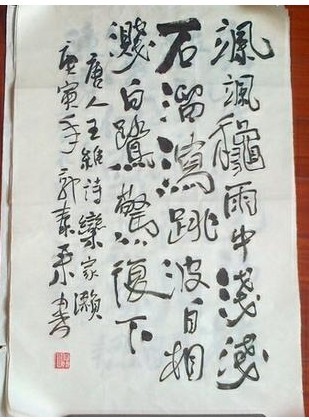 颯颯穐雨中淺淺
石溜瀉跳波自相
濺白鷺驚復下
唐人王維詩欒家瀨
庚寅年郭書